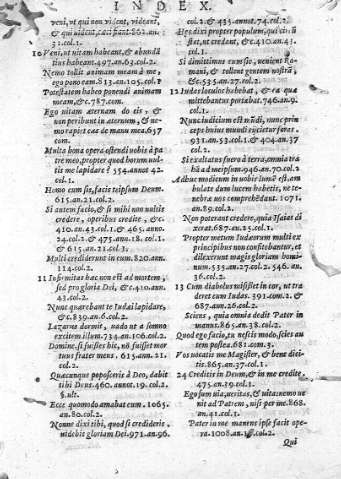 INDEX.
veni, ut qui non vident, videant,
& qui vident, cæci fiant. 862. an.
31. col. 1.
10 Veni, ut vitam habeant, & abundā
tius habeant. 497. an. 63. col. 2.
Nemo tollit animam meam à me,
ego pono eam. 813. an. 105. col. 2
Potestatem habeo ponendi animam
meam, &c. 787. com.
Ego vitam æternam do eis, &
non peribunt in æternum, & ne-
mo rapiet eas de manu mea. 637
com.
Multa bona opera ostendi vobis à pa
tre meo, propter quod horum vul-
tis me lapidare? 354. annot 42.
col. 1.
Homo cum sis, facis teipsum Deum.
615. an. 21. col. 2.
Si autem facio, & si mihi non vultis
credere, operibus credite, &c.
410. an. 43. col. 1. & 465. anno.
24. col. 2. & 475. ann. 18. col. 1.
& 615. an. 21. col. 1.
Multi crediderunt in eum. 820. ann.
114. col. 2.
11 Infirmitas hæc non est ad mortem,
sed pro gloria Dei, &c. 410. ann.
43. col. 2.
Nunc quærebant te Iudæi lapidare,
&c. 839. an. 6. col. 2.
Lazarus dormit, vado ut à somno
excitem illum. 734. an. 106. col. 2.
Domine, si fuisses hic, nō fuisset mor
tuus frater meus. 615. ann. 21.
col. 2.
Quæcunque poposceris à Deo, dabit
tibi Deus. 460. annot. 19. col. 2.
§. ult.
Ecce quomodo amabat eum. 1065.
an. 80. col. 2.
Nonne dixi tibi, quod si credideris,
videbis gloriam Dei. 971. an. 96.
col. 2. & 435. annot. 74. col. 2.
Sed dixi propter populum, qui cir.
stet, ut credant, &c. 410. an. 43.
col. 1.
Si dimittimus eum sic, venient Ro-
mani, & tollent gentem nostrā,
&c. 535. an. 27. col. 2.
12 Iudas loculos habebat, & ea quæ
mittebantur portabat. 746. an. 9.
col. 1.
Nunc iudicium est mūdi, nunc prin
ceps huius mundi eiicietur foras.
931. an. 53. col. 1. & 404. an. 37
col. 2.
Si exaltatus fuero à terra, omnia tra
hā ad meipsum. 946. an. 70. col. 2
Adhuc modicum in vobis lumē est. am
bulate dum lucem habetis, ne te-
nebræ vos comprehēdant. 1071.
an. 89. col. 2.
Non poterant credere, quia Isaias di
xerat. 687. an. 25. col. 1.
Propter metum Iudæorum multi ex
principibus non confitebantur, et
dilexerunt magis gloriam homi-
num. 535. an. 27. col. 2. 546. an.
36. col. 2.
13 Cum diabolus misisset in cor, ut tra
deret eum Iudas. 391. com. 2. &
687. ann. 26. col. 2.
Sciens, quia omnia dedit Pater in
manus. 865. an. 38. col. 2.
Quod ego facio, tu nescis modo, scies au
tem postea. 681. com. 3.
Vos vocatis me Magister, & bene dici-
tis. 865. an. 37. col. 1.
24 Creditis in Deum, & in me credite
475. an. 39. col. 1.
Ego sum via, veritas, & vita: nemo ve
nit ad Patrem, nisi per me. 868.
an. 41. col. 1.
Pater in me manens ipse facit ope-
ra. 1008. an. 19. col. 2.
Qui